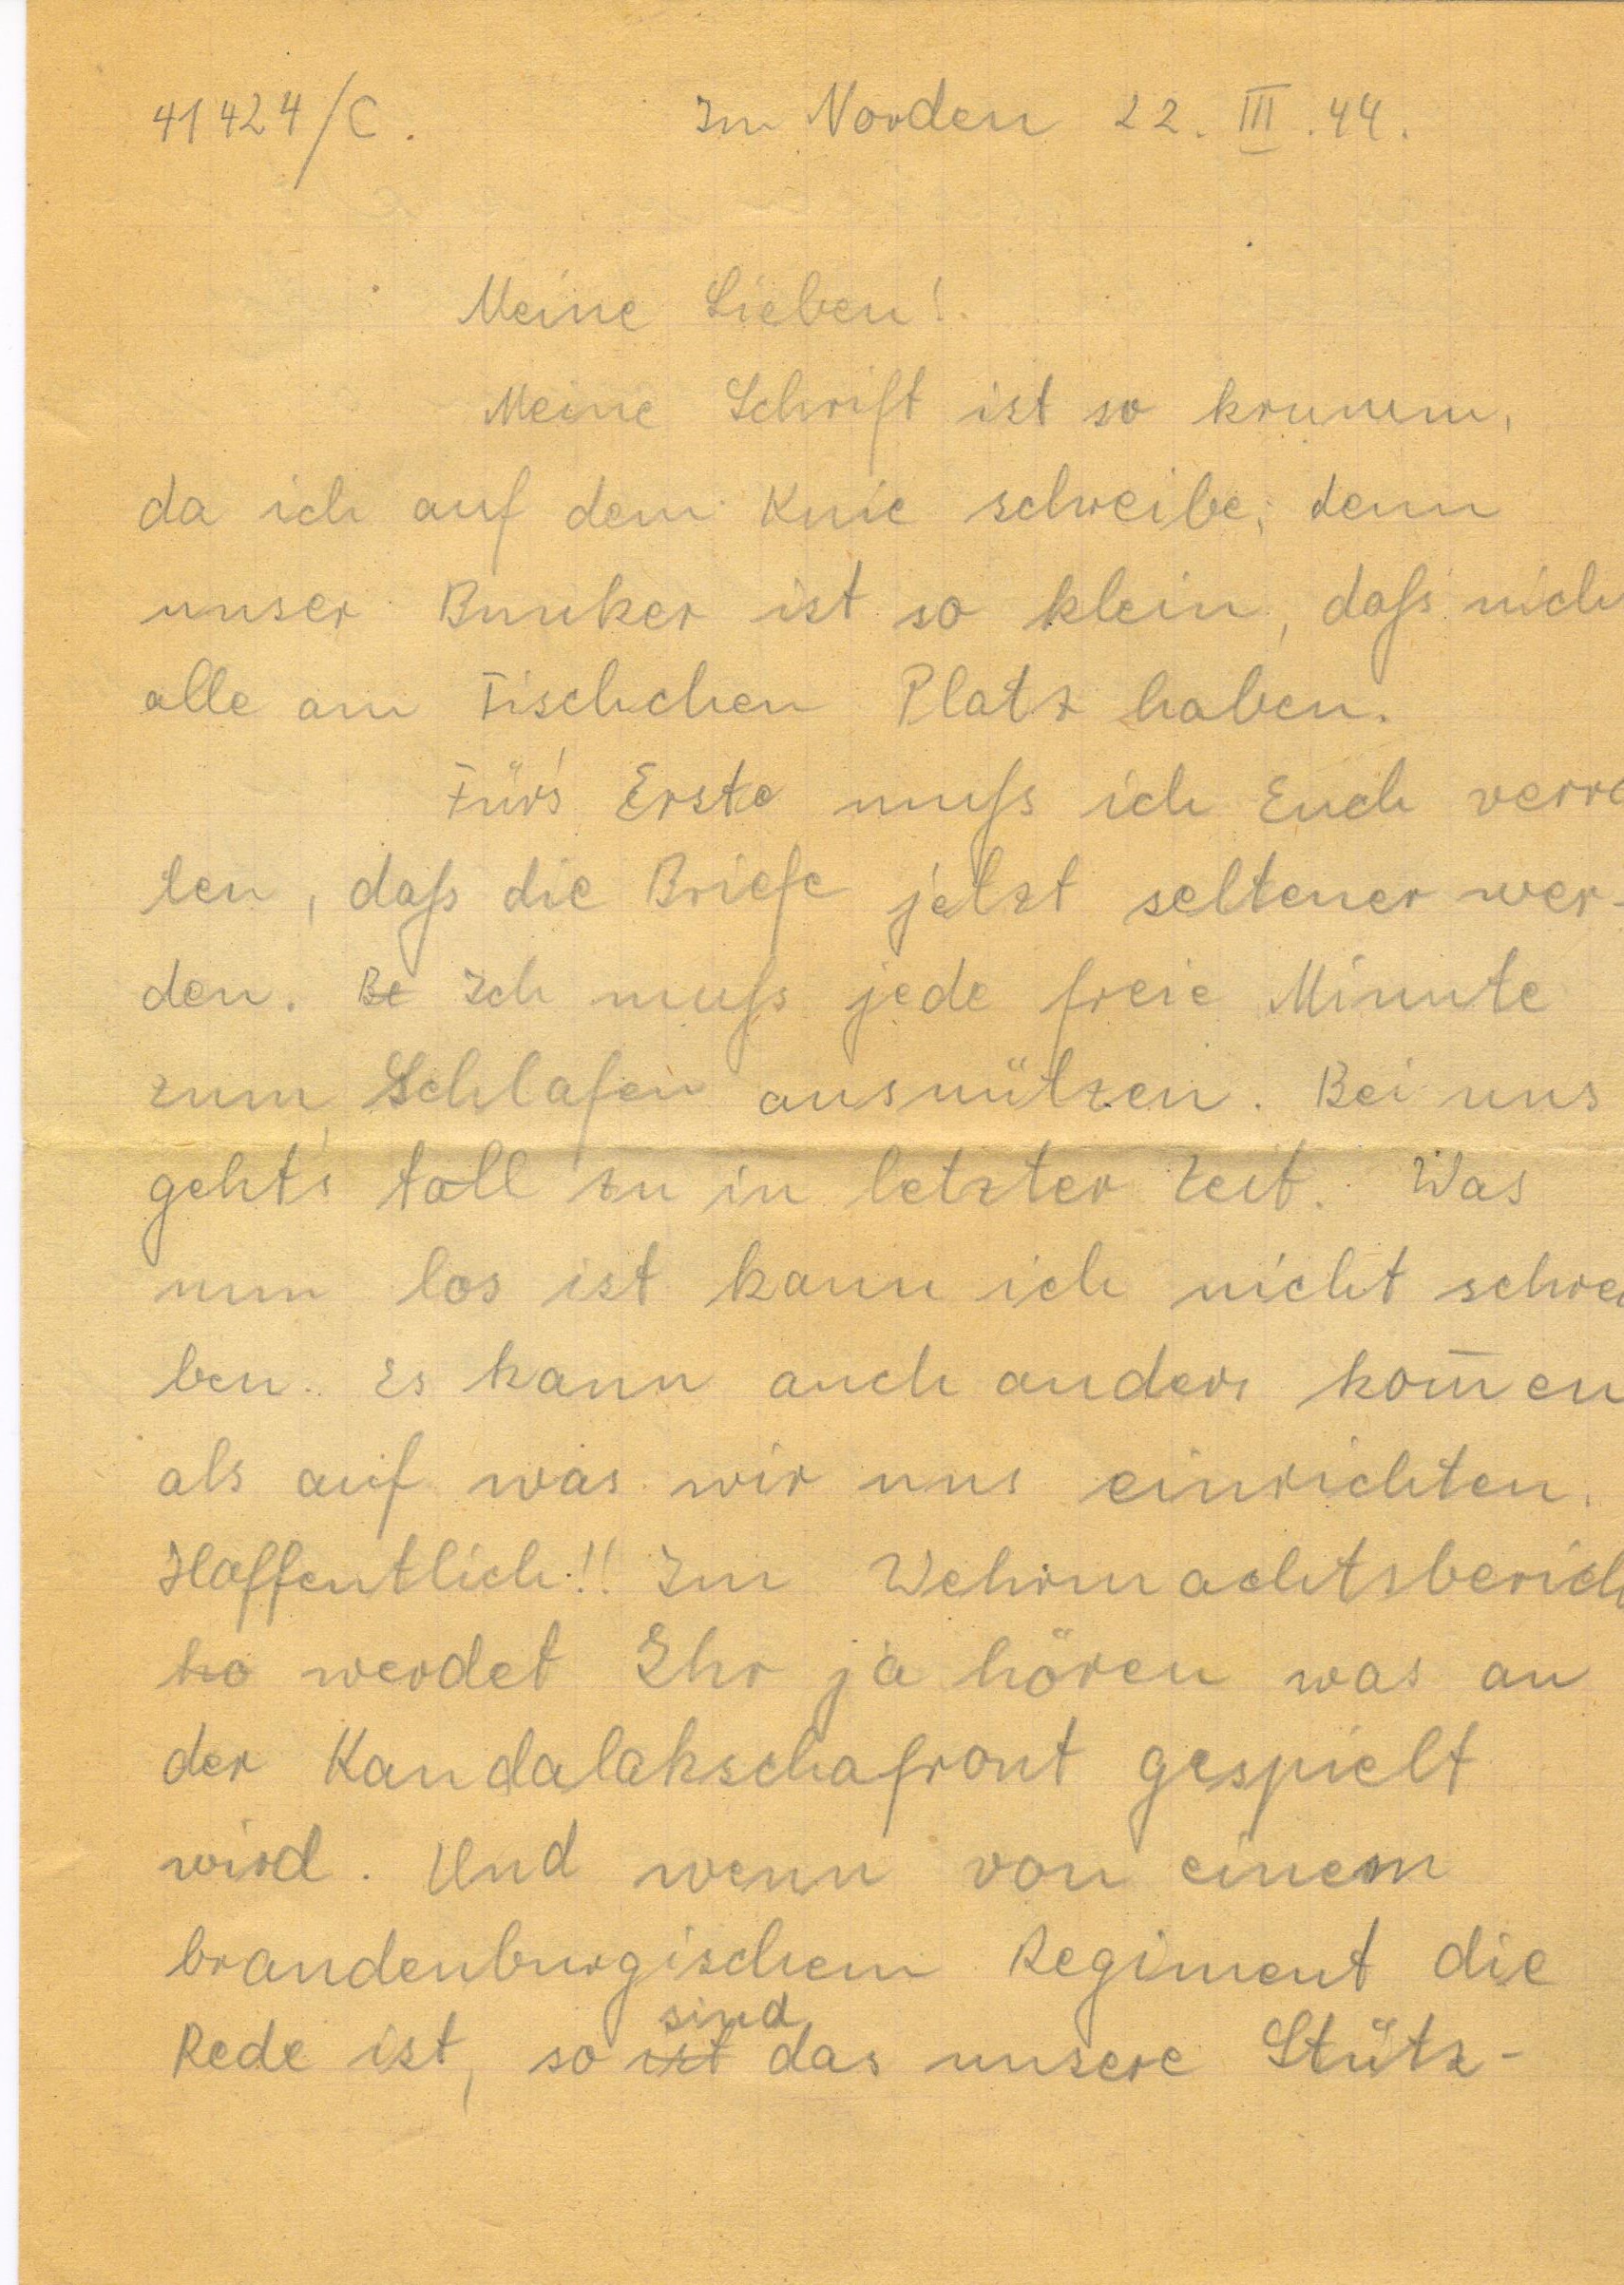 41424/C. Im Norden 22. III. 44.
Meine Lieben!
Meine Schrift ist so krumm,
da ich auf dem Knie schreibe, denn
unser Bunker ist so klein, daß nich
alle am Tischchen Platz haben.
Für's Erste muß ich Euch verra
ten, daß die Briefe jetzt seltener wer-
den. Be Ich muß jede freie Minute
zum Schlafen ausnützen. Bei uns
geht's toll zu in letzter Zeit. Was
nun los ist kann ich nicht schrei
ben. Es kann auch anders kom̄en
als auf was wir uns einrichten.
Hoffentlich!! Im Wehrmachtsberich
ho werdet Ihr ja hören was an
der Kandalakschafront gespielt
wird. Und wenn von einem
brandenburgischem Regiment die
sind
Rede ist, so ist das unsere Stütz-